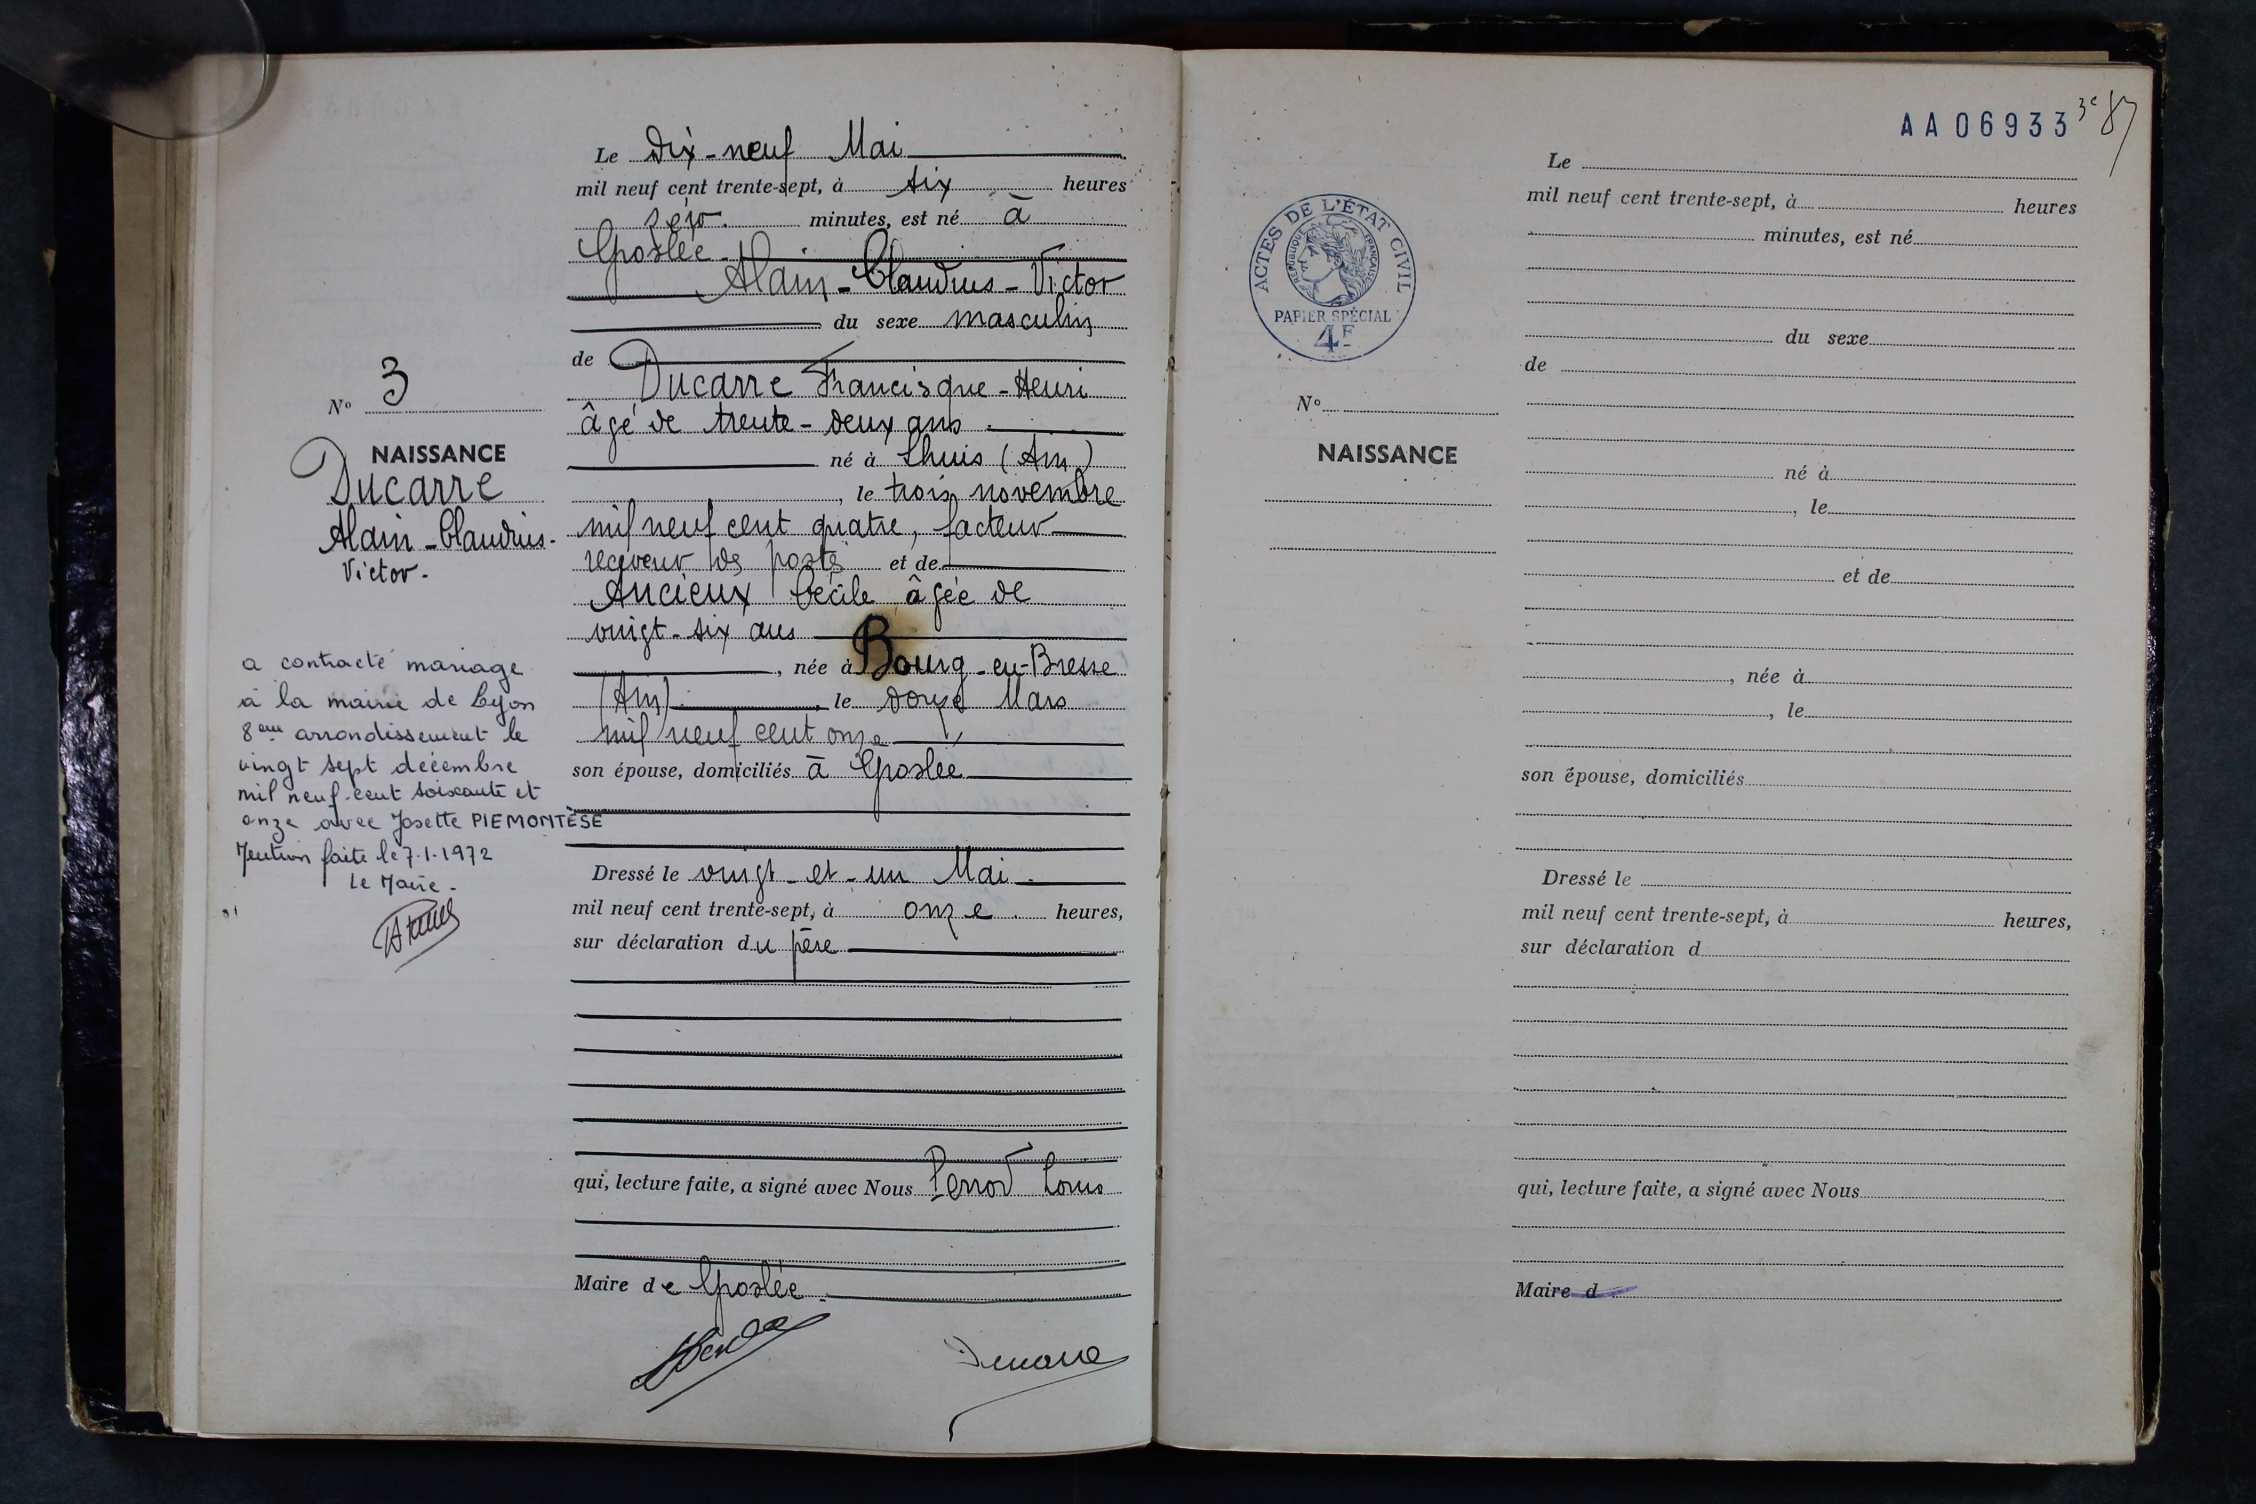 Le dix-neuf Mai
mil neuf cent trente-sept, à six heures
zéro. minutes, est né à
Groslée
Alain-Claudius-Victor
du sexe masculin
de
Ducarre Francisque-Henri
âgé de trente-deux ans
né à Lhuis (Ain)
, le trois novembre
mil neuf cent quatre, facteur
receveur des postes et de
Ancieux Cécile âgée de
vingt-six ans
, née à Bourg-en-Bresse
(Ain) , le douze Mars
mil neuf cent onze
son épouse, domiciliés à Groslée
Dressé le vingt-et-un Mai
mil neuf cent trente-sept, à onze heures,
sur déclaration du père
qui, lecture faite, a signé avec Nous Perrod Louis
Maire de Groslée
Ducarre
No 3
NAISSANCE
Ducarre
Alain-Claudius-
Victor.
a contracté mariage
à la mairie de Lyon
8eme arrondissement le
vingt sept décembre
mil neuf cent soixante et
onze avec Josette PIEMONTÈSE
Mention faite le 7.1.1972
Le Maire.
AA06933
3e 87
ACTES DE L'ÉTAT CIVIL
RÉPUBLIQUE FRANÇAISE
PAPIER SPÉCIAL
4F
No
NAISSANCE
Le
mil neuf cent trente-sept, à heures
minutes, est né
du sexe
de
né à
, le
et de
, née à
, le
son épouse, domiciliés
Dressé le
mil neuf cent trente-sept, à heures,
sur déclaration d
qui, lecture faite, a signé avec Nous
Maire d